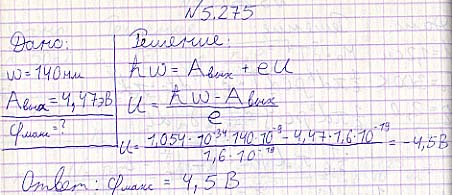 №5.275
Дано:
w=140нм
Aвых=4,47эВ
φмакс=?
Решение:
ħw=Aвых+eU
U=ħw-Aвых/e
U=1,054·10^-34·140·10^-9-4,47·1,6·10^-19/1,6·10^-19=-4,5В
Ответ: φмакс=4,5В